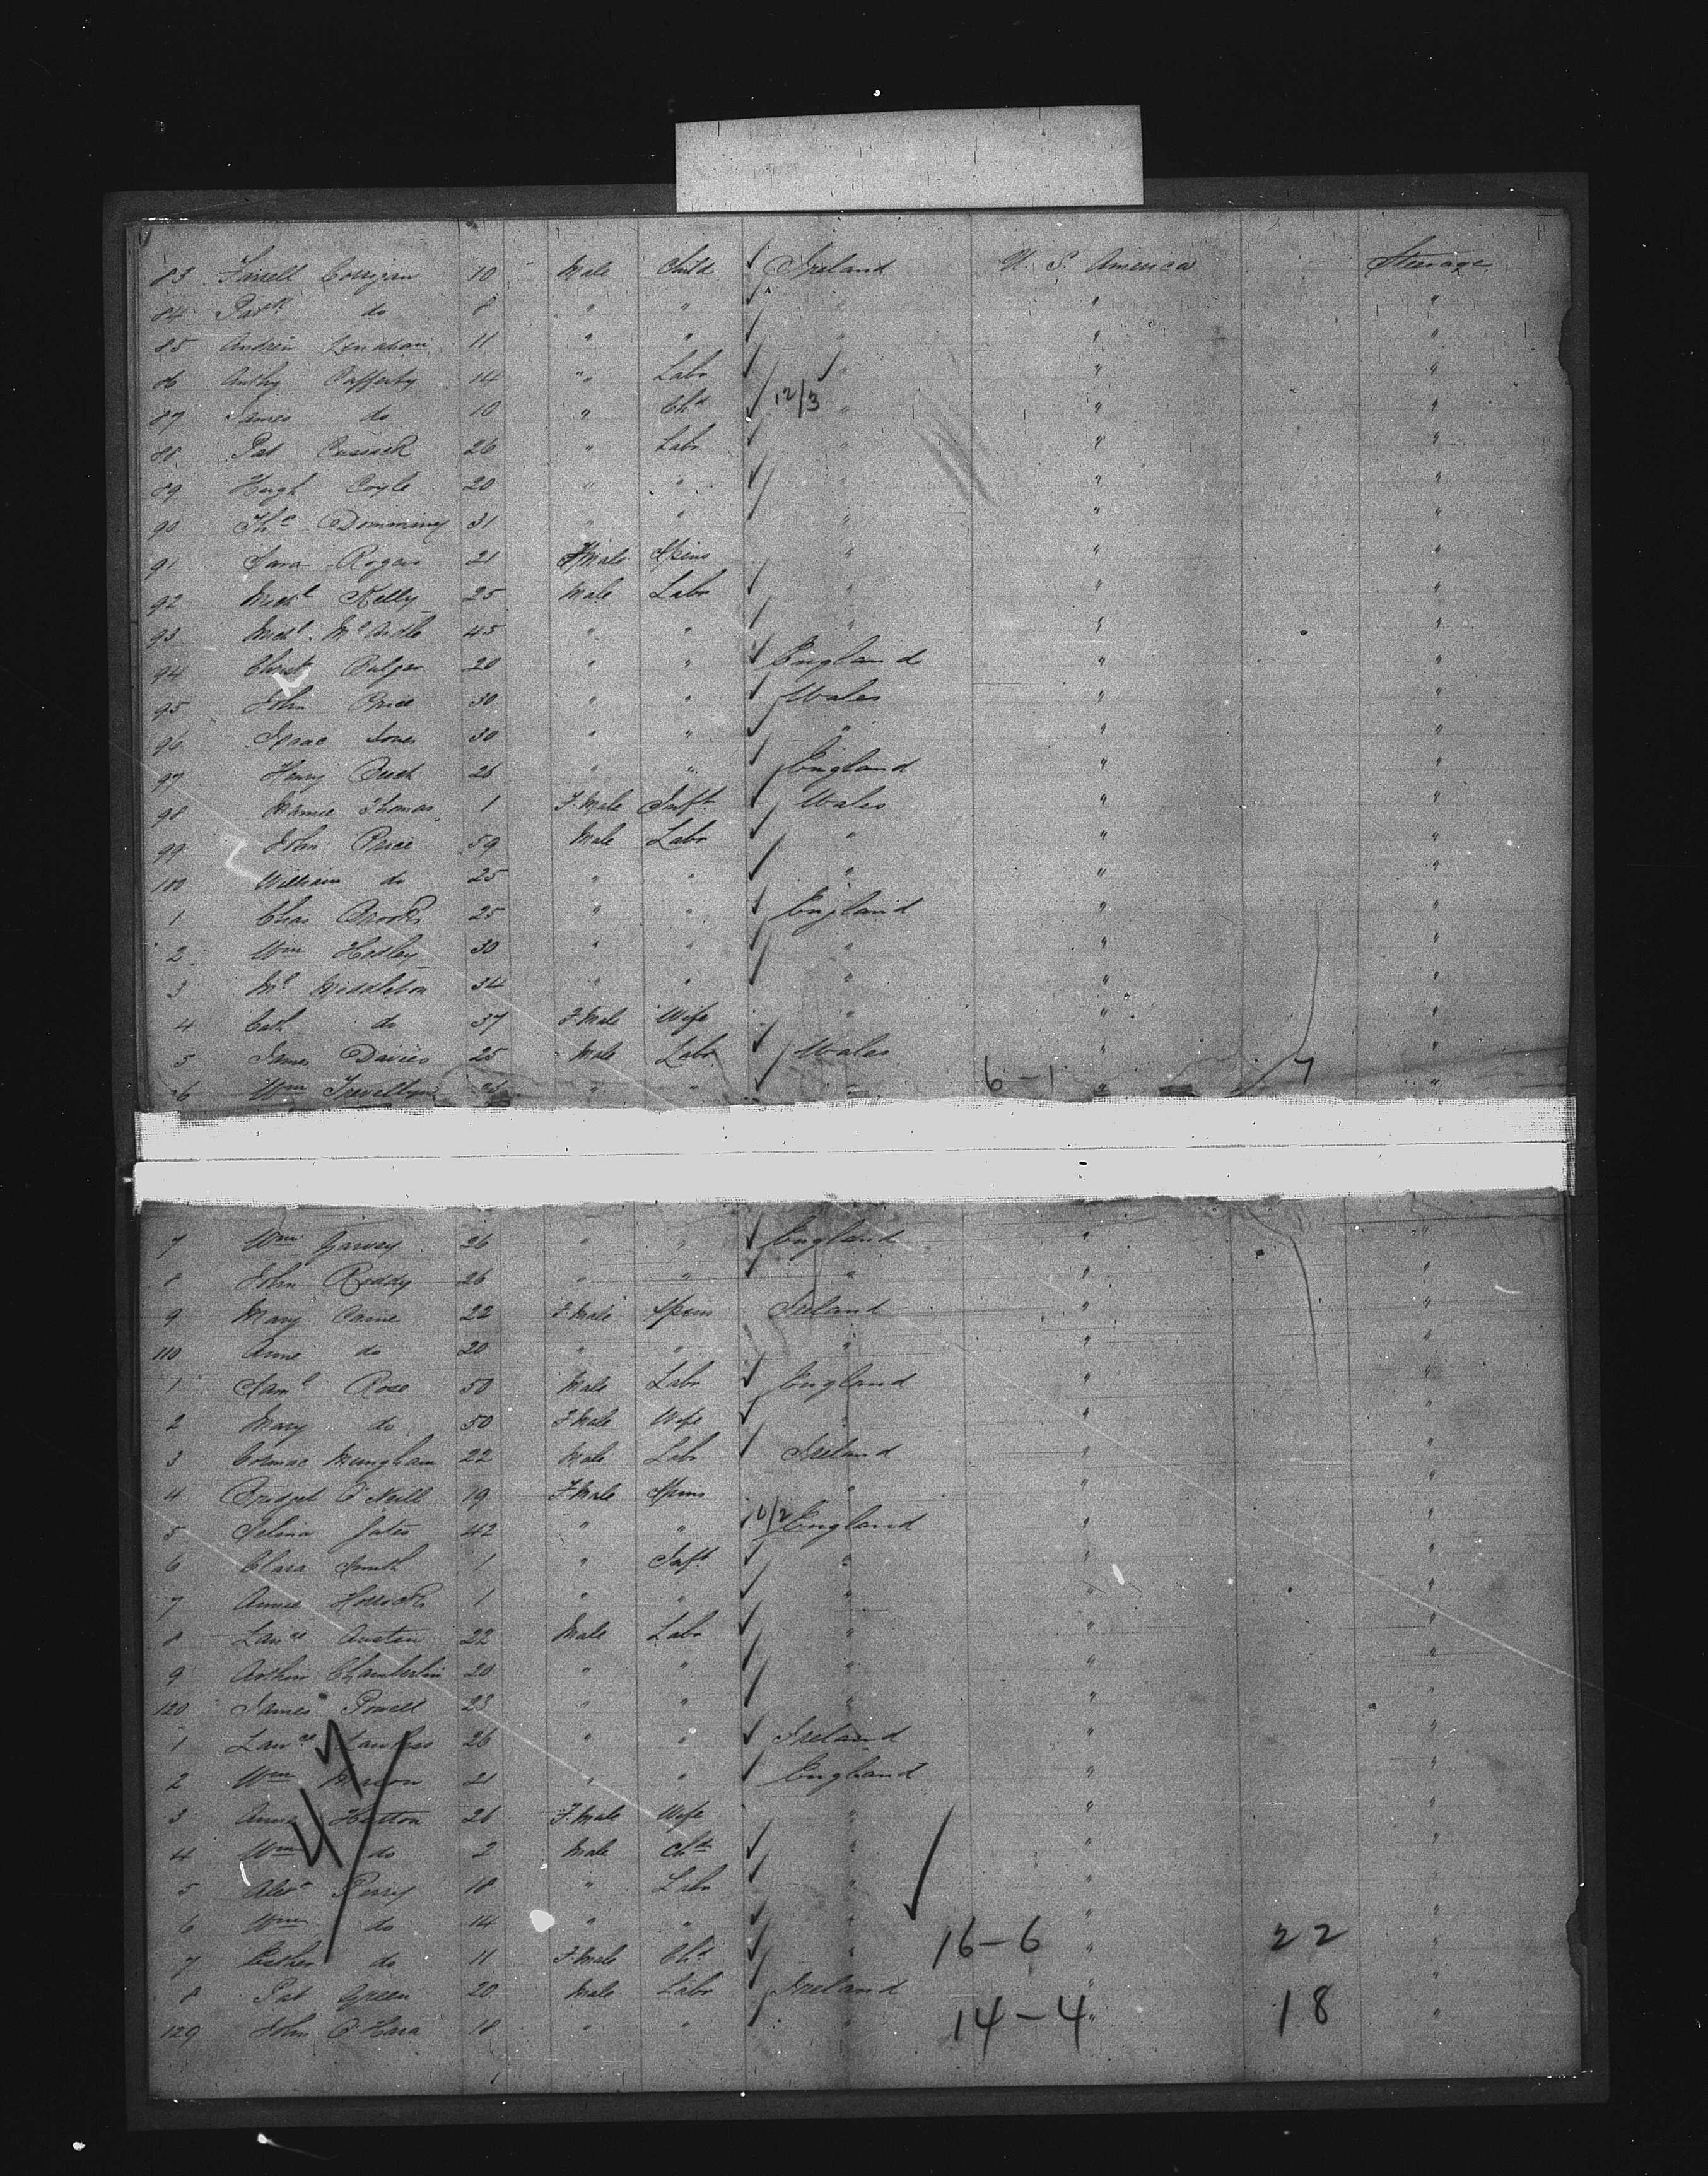 83 Farrell Corrigan 10 Male Child Ireland U. S. America Steerage
84 Patk do 8 " " " " "
85 Andrew Lenahan 11 " " " " "
86 Anthy Cafferty 14 " Labr " " "
87 James do 10 " Chd 12/3 " " "
88 Pat Cusack 26 " Labr " " "
89 Hugh Coyle 20 " " " " "
90 Thos 31 " " " " "
91 Sara Rogers 21 F Male Spins " " "
92 Michl Kelly 25 Male Labr " " "
93 Michl McArdle 45 " " " " "
94 Christ Bulger 20 " " England " "
95 John Price 30 " " Wales " "
96 Isaac Jones 30 " " " " "
97 Henry 26 " " England " "
98 Thomas 1 F. Male Inft Wales " "
99 John Price 59 Male Labr " " "
100 William do 25 " " " " "
1 Chas Brooks 25 " " England " "
2 Wm Hedley 30 " " " " "
3 Middleton 34 " " " " "
4 Cath do 37 F. Male Wife " " "
5 James Davies 25 Male Labr Wales " "
6 Wm " " " 6-1 " 7 "
7 Wm Garvey 26 " " England " "
8 John Reddy 26 " " " " "
9 Mary Caine 22 F. Male Spins Ireland " "
110 Anne do 20 " " " " "
1 Saml Rose 50 Male Labr England " "
2 Mary do 50 F. Male Wife " " "
3 Cormac Mungham 22 Male Labr Ireland " "
4 Bridget O'Neill 19 F. Male Spins " " "
5 Selina Yates 42 " " England " "
6 Clara Smith 1 " Inft " " "
7 Annie 1 " " " " "
8 Lance Austin 22 Male Labr " " "
9 Arthur Chamberlin 20 " " " " "
120 James Powell 23 " " " " "
1 Lance 26 " " Ireland " "
2 Wm 21 " " England " "
3 Anna Hutton 26 F. Male Wife " " "
4 Wm do 2 Male Chd " " "
5 Alexr Perry 18 " Labr " " "
6 Wm do 14 " " " " "
7 Esther do 11 F. Male Chd " 16-6 " 22 "
8 Pat Green 20 Male Labr Ireland " "
129 John O'Hara 18 " " " 14-4 " 18 "